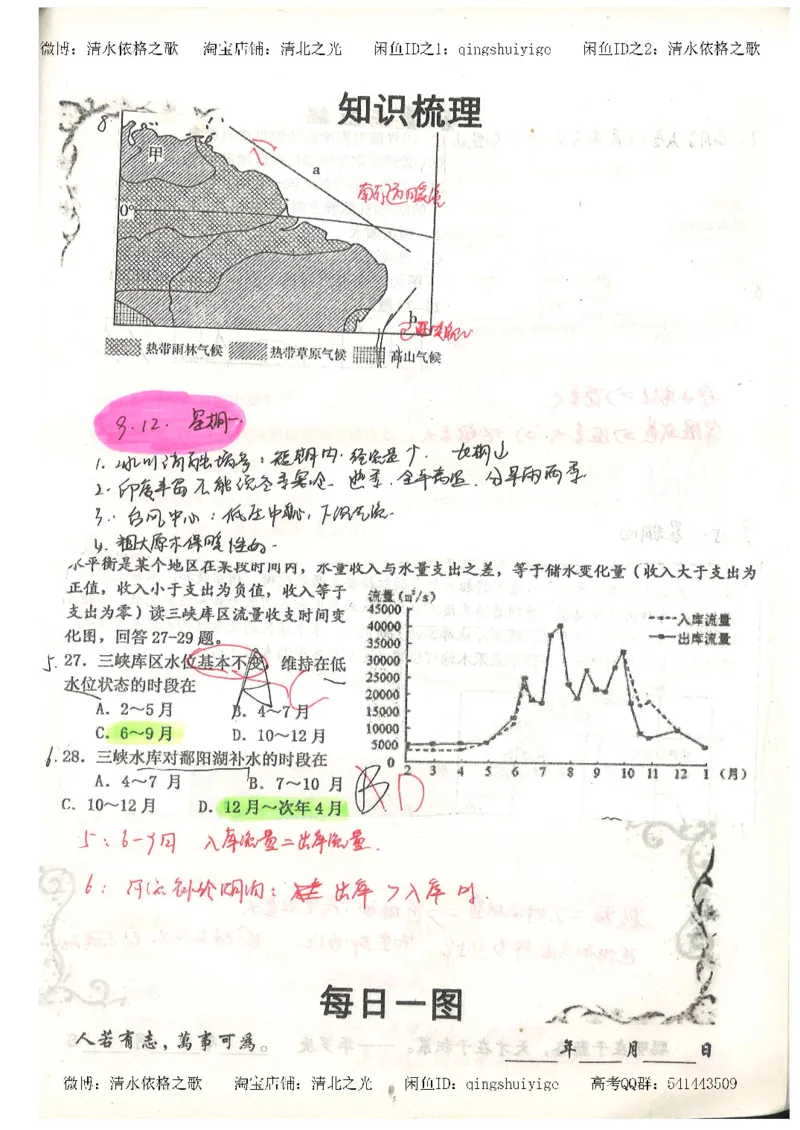 微博：清水依格之歌 淘宝店铺：清北之光 闲鱼ID之1：qingshuiyige 闲鱼ID之2：清水依格之歌
知识梳理
8.
甲
a
南赤道暖流
0°
b
巴西暖流
热带雨林气候 热带草原气候 高山气候
9.12. 星期一.
2. 印度半岛不能说冬季寒冷. 热季. 全年高温. 分旱雨两季.
3. 台风中心：低压中心, 下沉气流.
4. 粗大原木保暖性好.
水平衡是某个地区在某段时间内，水量收入与水量支出之差，等于储水变化量（收入大于支出为
正值，收入小于支出为负值，收入等于
支出为零）读三峡库区流量收支时间变
化图，回答 27-29 题。
5. 27．三峡库区水位基本不变，维持在低
水位状态的时段在
A．2～5月 B．4～7月
C．6～9月 D．10～12月
6. 28．三峡水库对鄱阳湖补水的时段在
A．4～7 月 B．7～10 月
C．10～12 月 D．12月～次年4月
B D
流量(m³/s)
45000
40000
35000
30000
25000
20000
15000
10000
5000
0
入库流量
出库流量
2 3 4 5 6 7 8 9 10 11 12 1 (月)
5：6-9月 入库流量=出库流量.
6： 出库 > 入库 时.
每日一图
人若有志，萬事可為。
年 月 日
微博：清水依格之歌 淘宝店铺：清北之光 闲鱼ID：qingshuiyige 高考QQ群：541443509